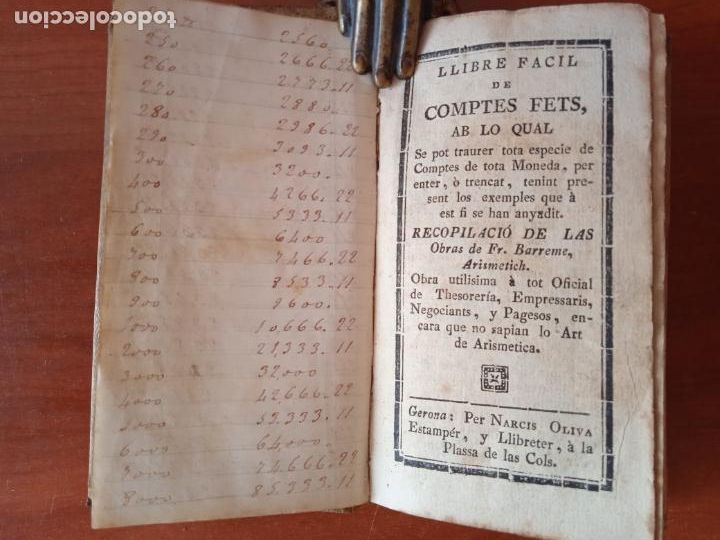 todocoleccion.net
250 2560.
260 2666.22
270 2773.11
280 2880.
290 2986.22
300 3093.11
400 3200.
500 4266.22
600 5333.11
700 6400
800 7466.22
900 8533.11
1000 9600.
2000 10,666.22
3000 21,333.11
4000 32,000
5000 42,666.22
6000 53,333.11
64,000.
74,666.22
8000 85,333.11
LLIBRE FACIL
DE
COMPTES FETS,
AB LO QUAL
Se pot traurer tota especie de
Comptes de tota Moneda, per
enter, ò trencat, tenint pre-
sent los exemples que à
est fi se han anyadit.
RECOPILACIÓ DE LAS
Obras de Fr. Barreme,
Arismetich.
Obra utilisima à tot Oficial
de Thesorería, Empressaris,
Negociants, y Pagesos, en-
cara que no sapian lo Art
de Arismetica.
Gerona: Per NARCIS OLIVA
Estampér, y Llibreter, à la
Plassa de las Cols.
todocoleccion.net